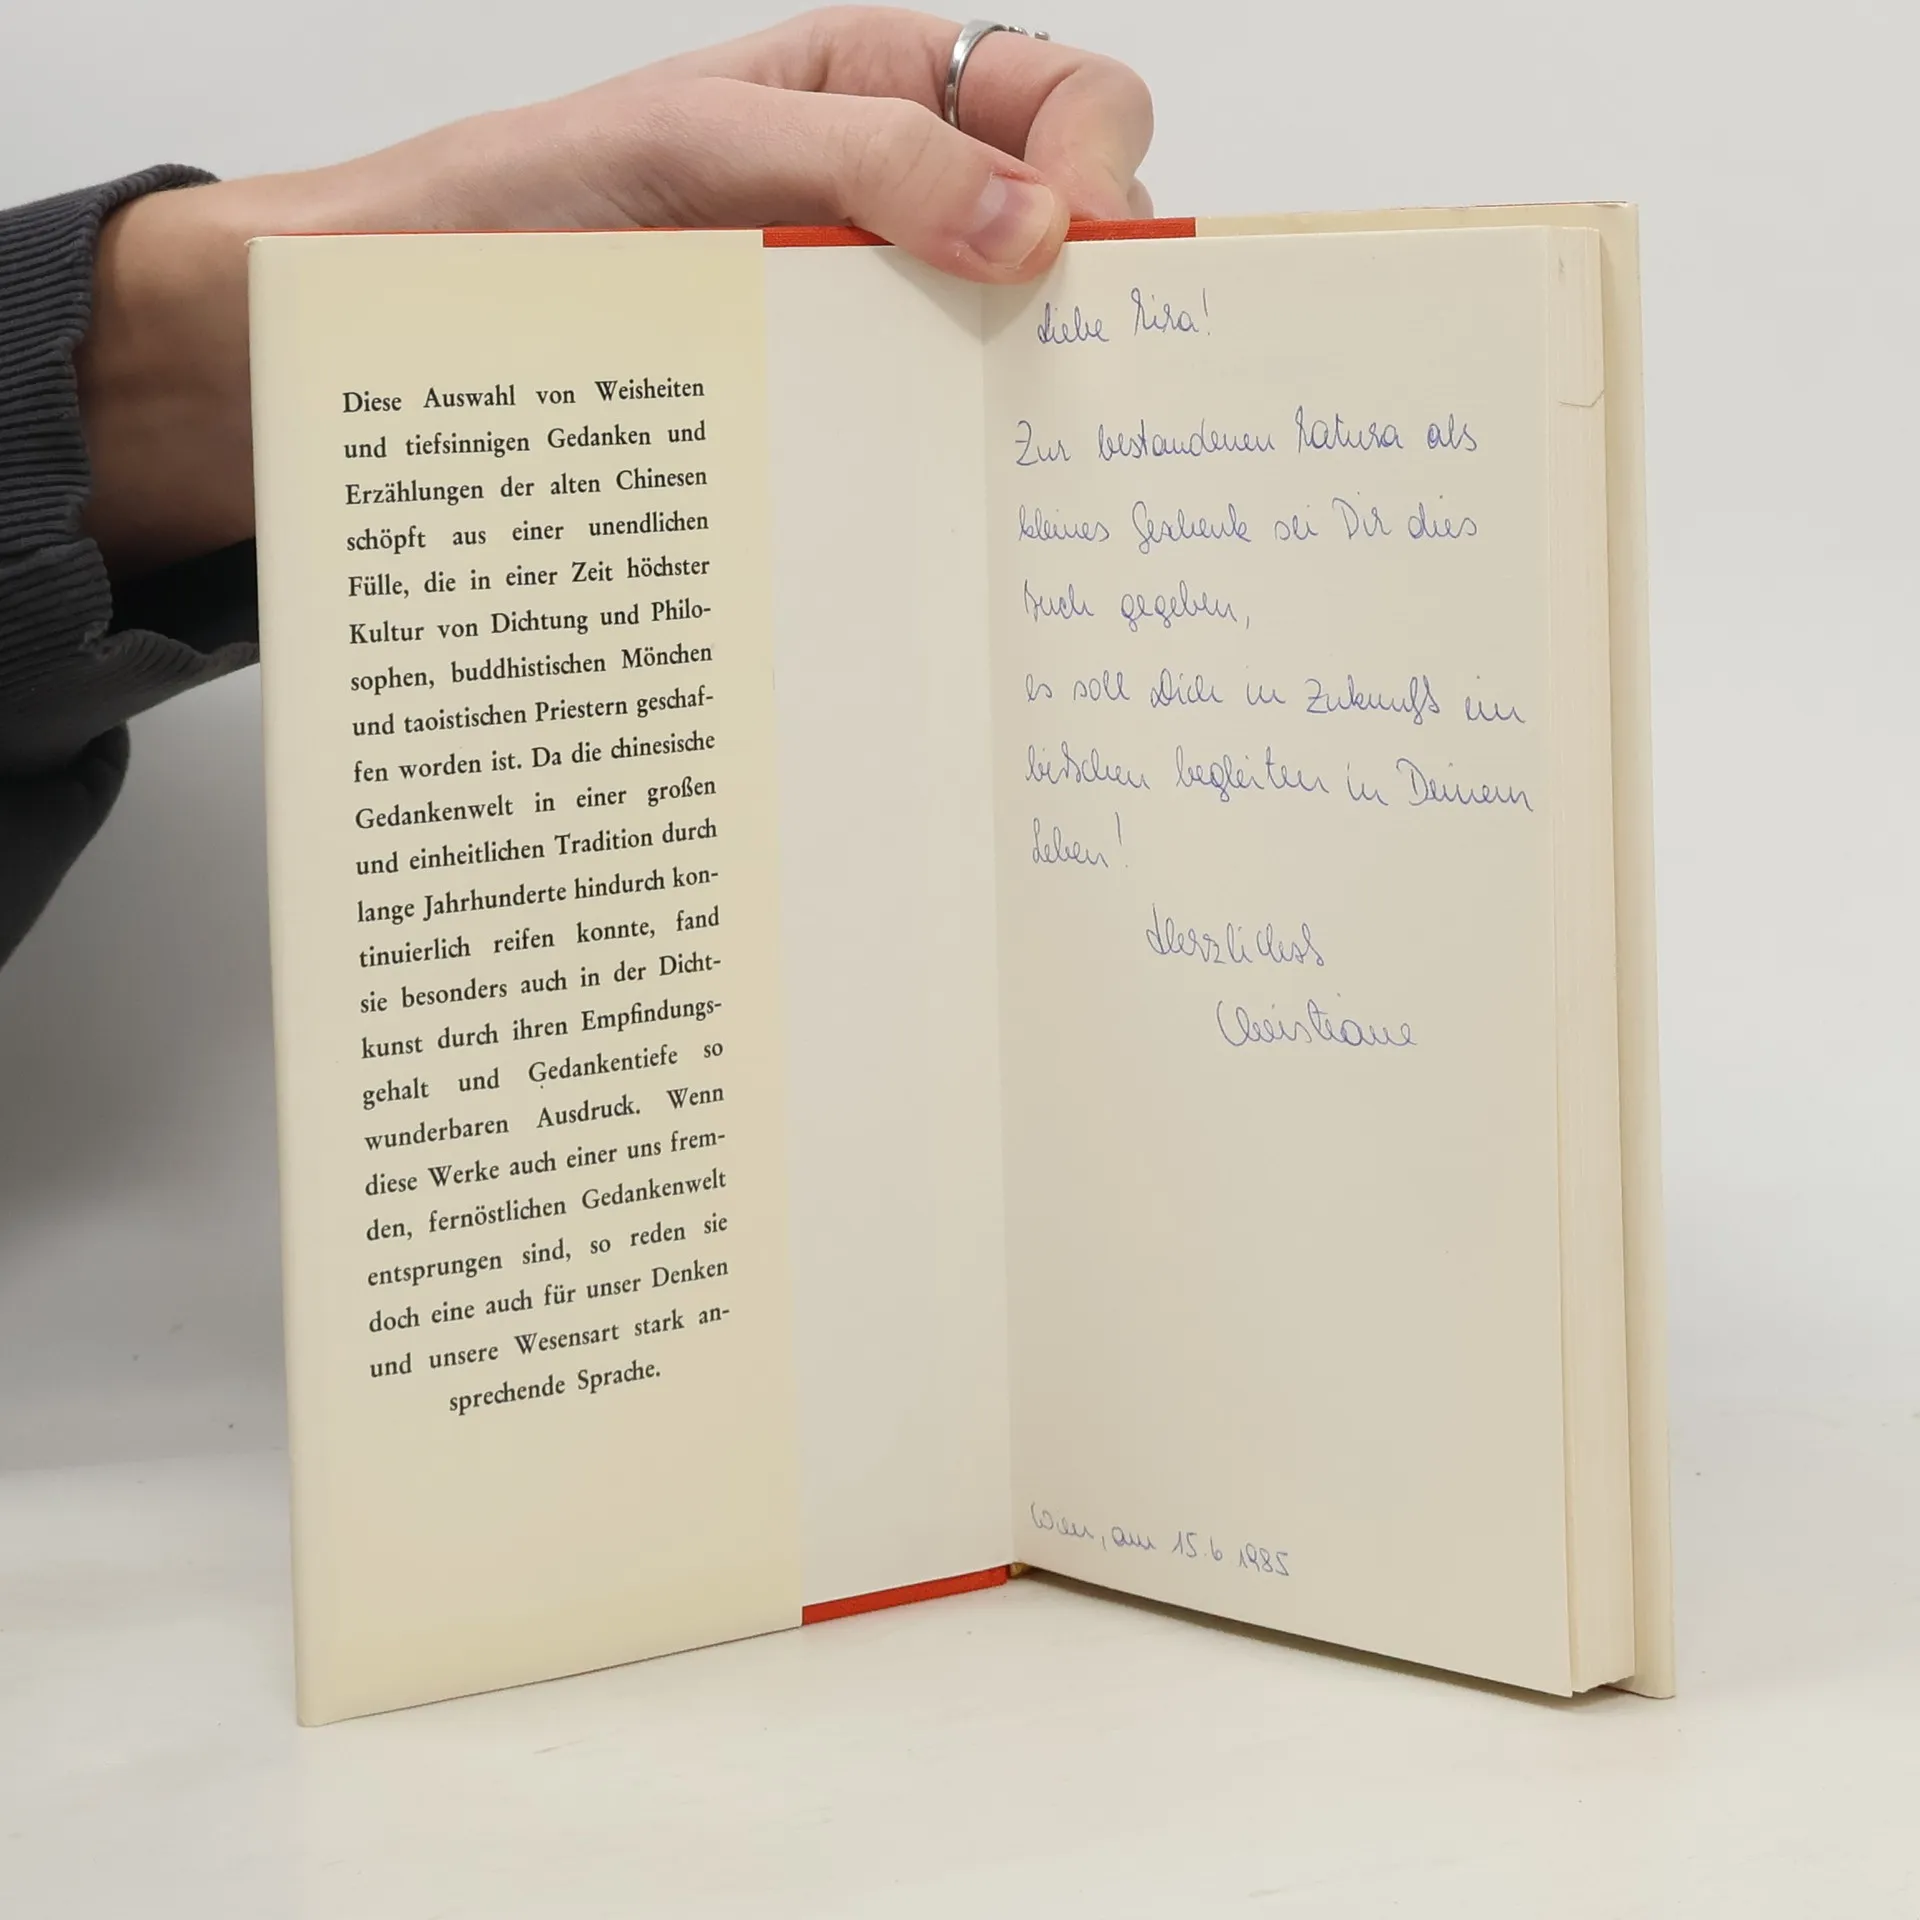 Diese Auswahl von Weisheiten
und tiefsinnigen Gedanken und
Erzählungen der alten Chinesen
schöpft aus einer unendlichen
Fülle, die in einer Zeit höchster
Kultur von Dichtung und Philo-
sophen, buddhistischen Mönchen
und taoistischen Priestern geschaf-
fen worden ist. Da die chinesische
Gedankenwelt in einer großen
und einheitlichen Tradition durch
lange Jahrhunderte hindurch kon-
tinuierlich reifen konnte, fand
sie besonders auch in der Dicht-
kunst durch ihren Empfindungs-
gehalt und Gedankentiefe so
wunderbaren Ausdruck. Wenn
diese Werke auch einer uns frem-
den, fernöstlichen Gedankenwelt
entsprungen sind, so reden sie
doch eine auch für unser Denken
und unsere Wesensart stark an-
sprechende Sprache.
Liebe
Zur bestandenen Matura als
kleines Geschenk sei Dir dies
Buch gegeben,
es soll Dich in Zukunft ein
bißchen begleiten in Deinem
Leben!
Herzlichst
Christiane
Wien, am 15.6 1985